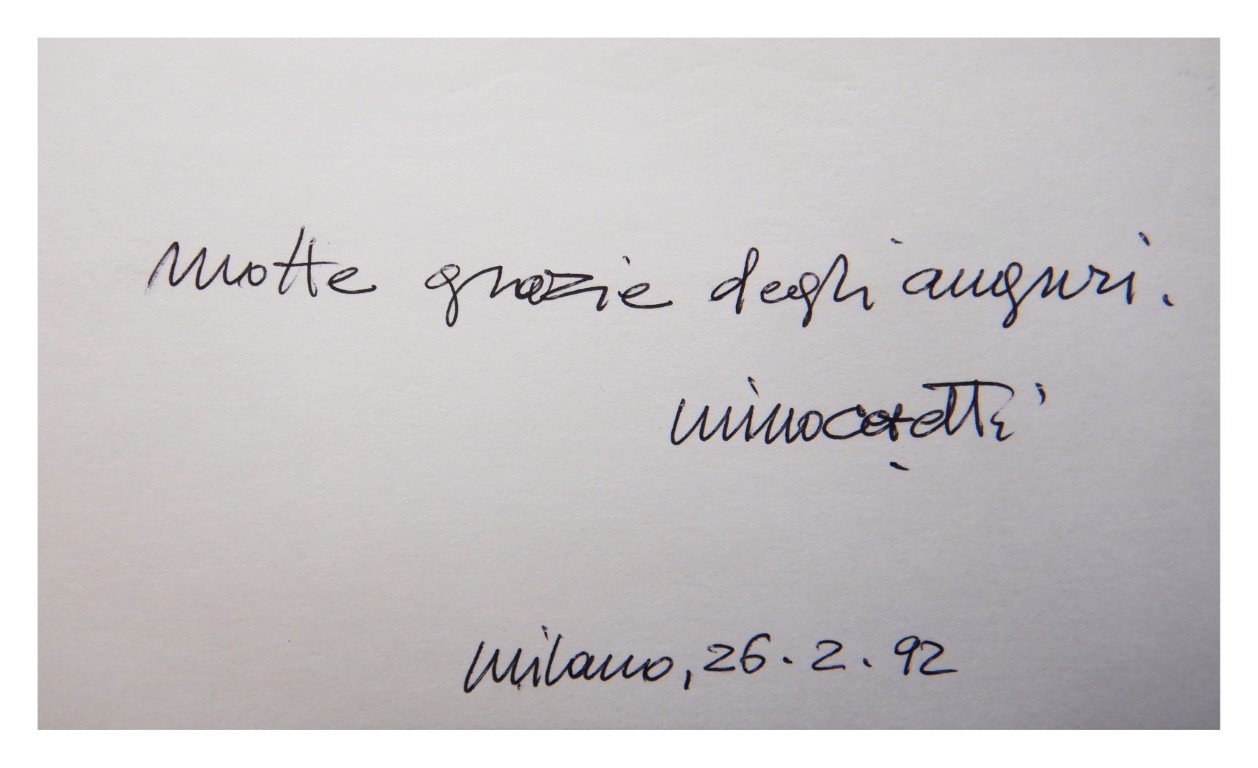 Molte grazie degli auguri.
mino ceretti
Milano, 26.2.92